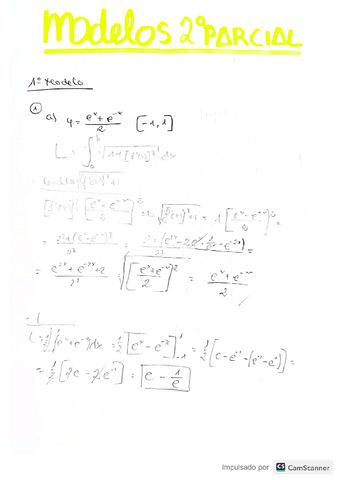 Modelos 2º PARCIAL
1º Modelo
① a) y = (eˣ + e⁻ˣ)/2 [-1, 1]
L = ∫ₐᵇ √(1+[f'(x)]²) dx
[f'(x)]² [(eˣ - e⁻ˣ)/2]² √([f'(x)]²+1) = 1 [(eˣ - e⁻ˣ)/2]² =
= (2²+(eˣ-e⁻ˣ)²)/2² =
= (e²ˣ + e⁻²ˣ + 2)/2² = √([(eˣ+e⁻ˣ)/2]²) = (eˣ + e⁻ˣ)/2
L = 1/2 ∫ (eˣ + e⁻ˣ) dx = 1/2 [eˣ - e⁻ˣ]¹₋₁ = 1/2 [e - e⁻¹ - (e⁻¹ - e¹)] =
= 1/2 [2e - 2e⁻¹] = e - 1/e
Impulsado por CS CamScanner